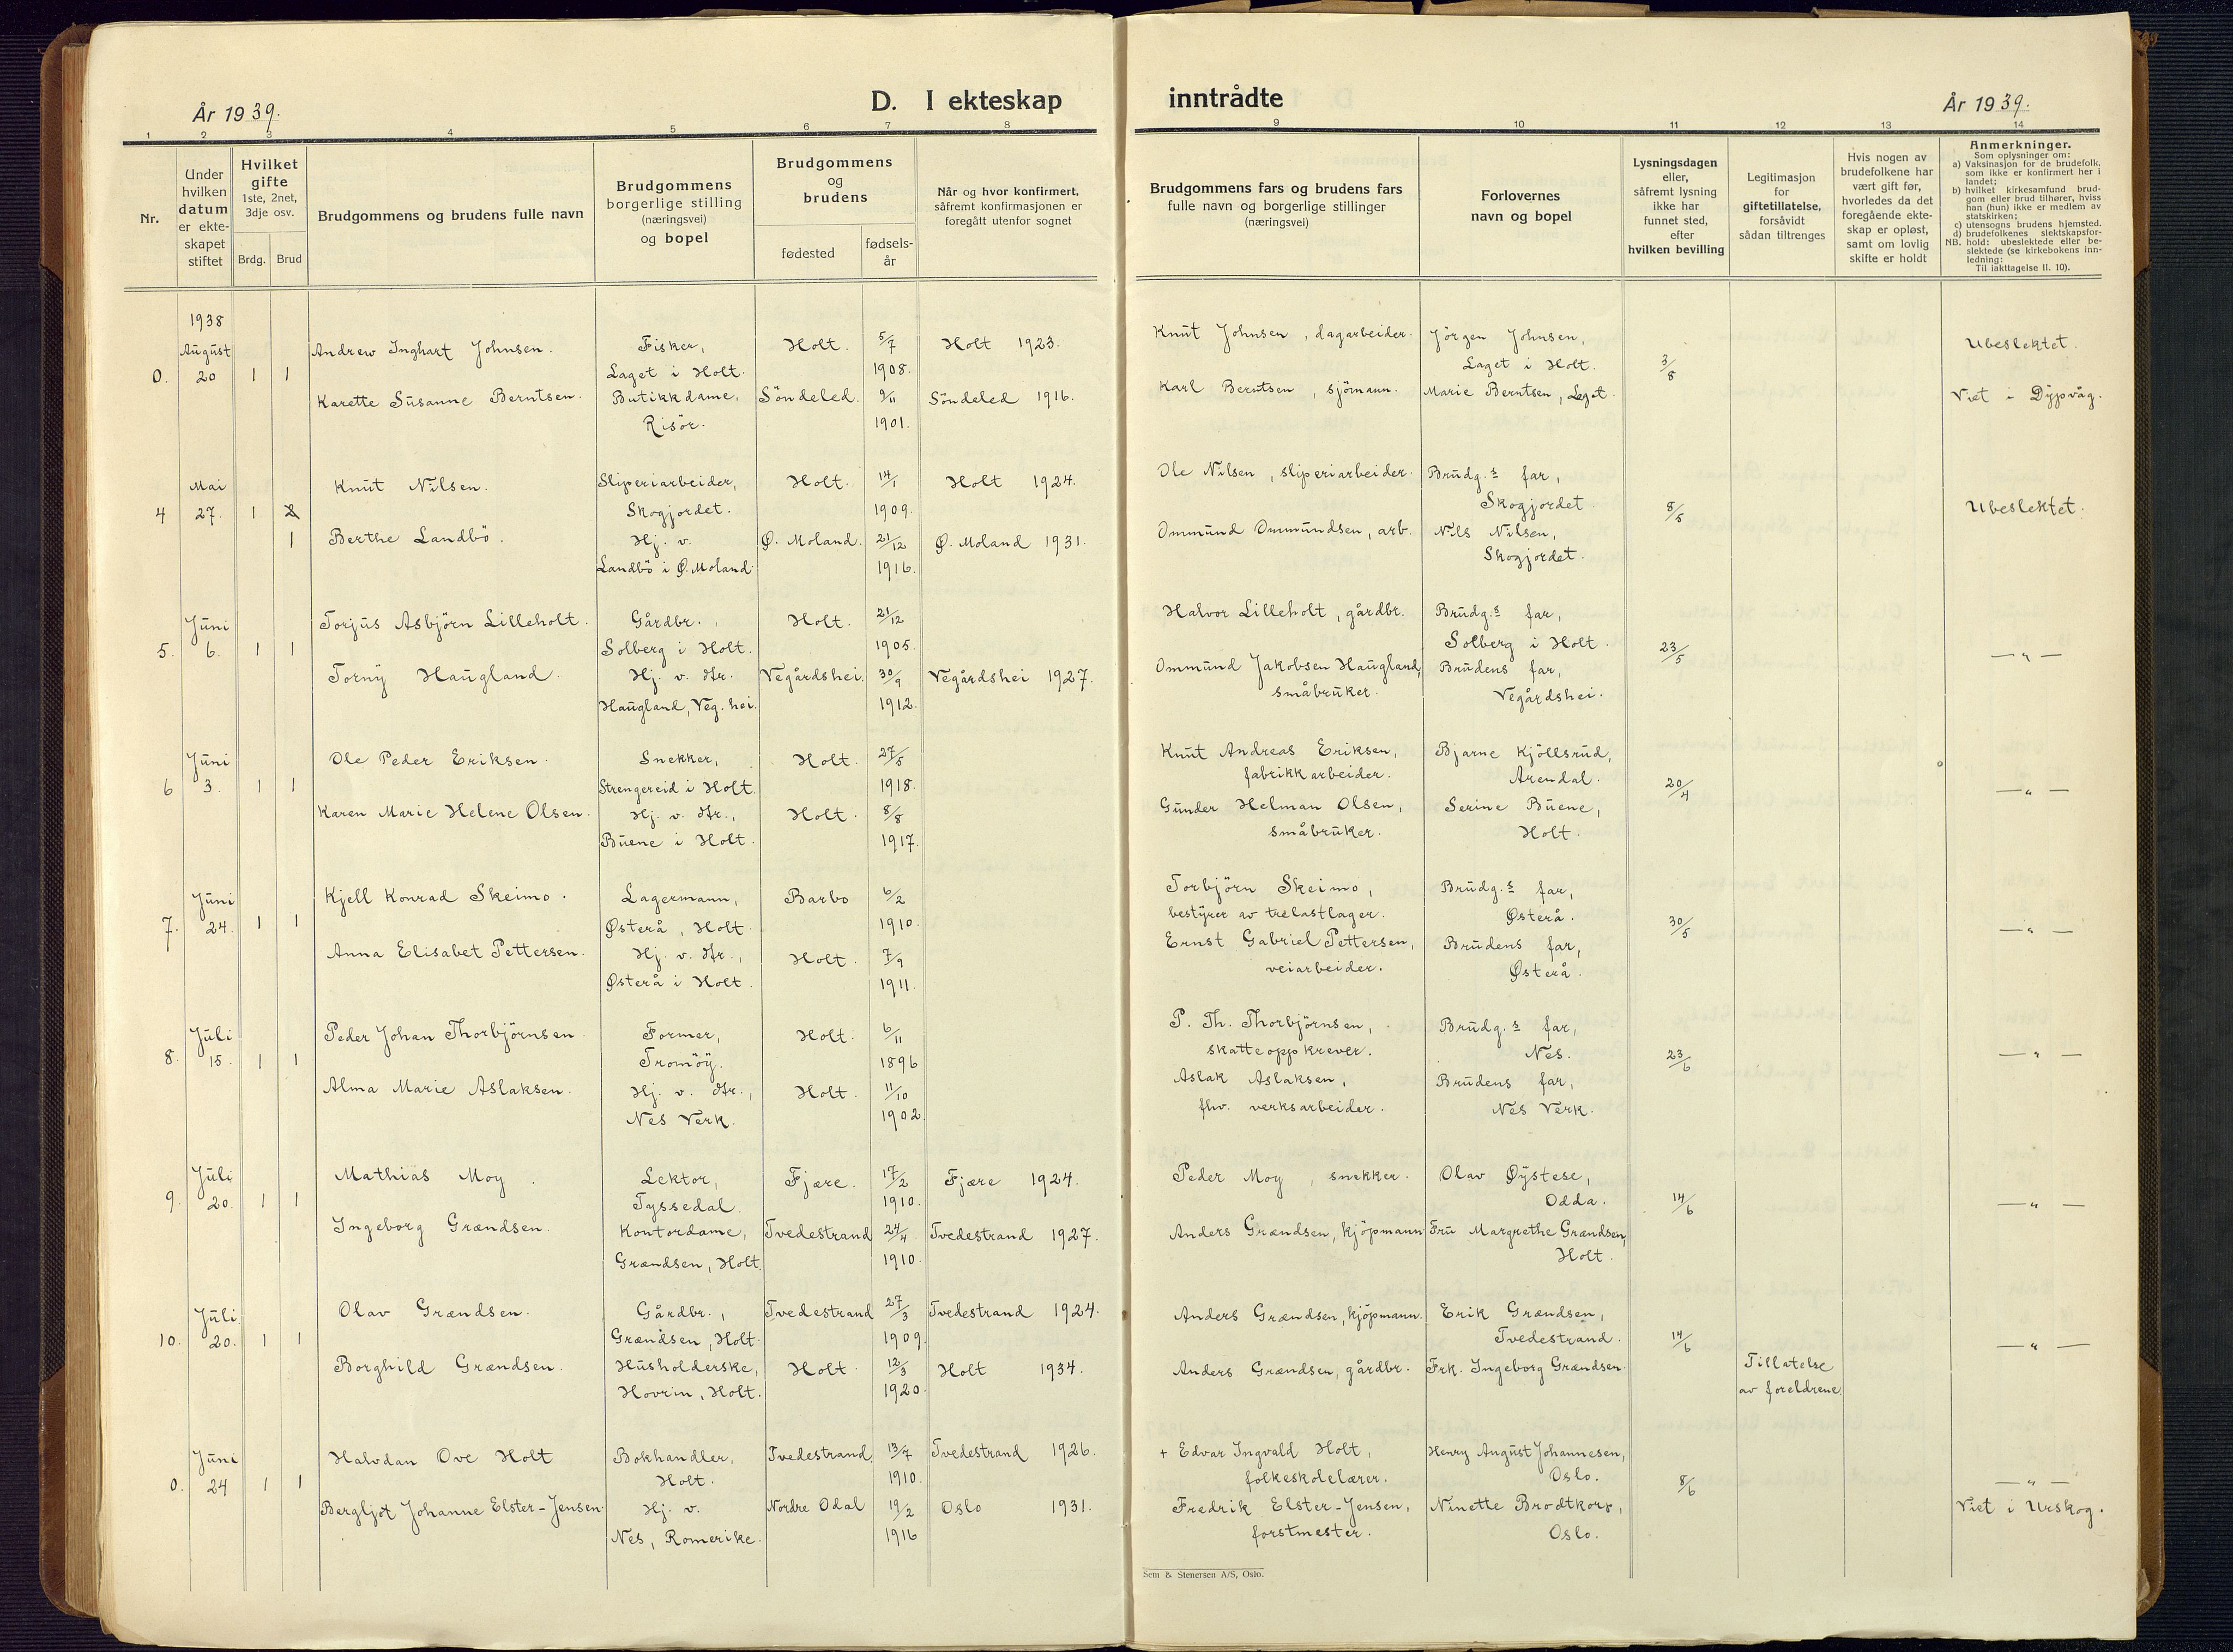 År 1939.
D. I ekteskap inntrådte
År 1939.
1 2 3 4 5 6 7 8 9 10 11 12 13 14
Nr.
Under
hvilken
datum
er ekte-
skapet
stiftet
Hvilket
gifte
1ste, 2net,
3dje osv.
Brdg. Brud
Brudgommens og brudens fulle navn
Brudgommens
borgerlige stilling
(næringsvei)
og bopel
Brudgommens
og
brudens
fødested
fødsels-
år
Når og hvor konfirmert,
såfremt konfirmasjonen er
foregått utenfor sognet
Brudgommens fars og brudens fars
fulle navn og borgerlige stillinger
(næringsvei)
Forlovernes
navn og bopel
Lysningsdagen
eller,
såfremt lysning
ikke har
funnet sted,
efter
hvilken bevilling
Legitimasjon
for
giftetillatelse,
forsåvidt
sådan tiltrenges
Hvis nogen av
brudefolkene har
vært gift før,
hvorledes da det
foregående ekte-
skap er opløst,
samt om lovlig
skifte er holdt
Anmerkninger.
Som oplysninger om:
a) Vaksinasjon for de brudefolk,
som ikke er konfirmert her i
landet;
b) hvilket kirkesamfund brud-
gom eller brud tilhører, hviss
han (hun) ikke er medlem av
statskirken;
c) utensogns brudens hjemsted.
d) brudefolkenes slektskapsfor-
NB. hold: ubeslektede eller be-
slektede (se kirkebokens inn-
ledning:
Til iakttagelse II. 10).
1938
August Andrew Inghart Johnsen. Fisker, Holt. 5/7 Holt 1923. Knut Johnsen, dagarbeider. Jörgen Johnsen, Ubeslektet.
0. 20 1 1 Laget i Holt. 1908. Laget i Holt. 3/8
Karette Susanne Berntsen. Butikkdame, Söndeled. 9/11 Söndeled 1916. Karl Berntsen, sjömann. Marie Berntsen, Laget. Viet i Dypvåg.
Risör. 1901.
Mai Knut Nilsen. Sliperiarbeider, Holt. 14/1 Holt 1924. Ole Nilsen, sliperiarbeider. Brudg.s far,
4 27. 1 2 Skogjordet. 1909. Skogjordet. 8/5 Ubeslektet.
1 Berthe Landbö. Hj. v. Ø. Moland. 21/12 Ø. Moland 1931. Ommund Ommundsen, arb. Nils Nilsen,
Landbö i Ø. Moland. 1916. Skogjordet.
Juni Torjus Asbjörn Lilleholt. Gårdbr., Holt. 21/12 Halvor Lilleholt, gårdbr. Brudg.s far,
5. 6. 1 1 Solberg i Holt. 1905. Solberg i Holt. 23/5 — " —
Torny Haugland. Hj. v. Hr. Vegårdshei. 30/9 Vegårdshei 1927. Ommund Jakobsen Haugland, Brudens far,
Haugland, Veg. hei. 1912. småbruker. Vegårdshei.
Juni Ole Peder Eriksen. Snekker, Holt. 27/5 Knut Andreas Eriksen, Bjarne Kjöllsrud,
6 3. 1 1 Strengereid i Holt. 1918. fabrikkarbeider. Arendal. 20/4 — " —
Karen Marie Helene Olsen. Hj. v. Hr., Holt. 8/8 Gunder Helman Olsen, Serine Buene,
Buene i Holt. 1917. småbruker. Holt.
Juni Kjell Konrad Skeimo. Lagermann, Barbo 6/2 Torbjörn Skeimo, Brudg.s far,
7. 24. 1 1 Østerå, Holt 1910. bestyrer av trelastlager. Østerå. 30/5 — " —
Anna Elisabet Pettersen. Hj. v. Hr., Holt. 7/9 Ernst Gabriel Pettersen, Brudens far,
Østerå i Holt. 1911. veiarbeider. Østerå.
Juli Peder Johan Thorbjörnsen Former, Holt. 6/11 P. Th. Thorbjörnsen, Brudg.s far,
8. 15. 1 1 Tromöy. 1896 skatteoppkrever. Nes. 23/6 — " —
Alma Marie Aslaksen. Hj. v. Hr., Holt. 11/10 Aslak Aslaksen, Brudens far,
Nes Verk. 1902. fhv. verksarbeider. Nes Verk.
Juli Mathias Moy. Lektor, Fjære. 17/2 Fjære 1924. Peder Moy, snekker. Olav Øystese,
9. 20. 1 1 Tyssedal. 1910. Odda. 14/6 — " —
Ingeborg Grændsen. Kontordame, Tvedestrand 24/4 Tvedestrand 1927. Anders Grændsen, kjöpmann Fru Margrethe Grændsen,
Grændsen, Holt. 1910. Holt.
Juli. Olav Grændsen. Gårdbr., Tvedestrand 27/3 Tvedestrand 1924. Anders Grændsen, kjöpmann. Erik Grændsen,
10. 20. 1 1 Grændsen, Holt. 1909. Tvedestrand. 14/6 — " —
Borghild Grændsen. Husholderske, Holt. 12/3 Holt 1934. Anders Grændsen, gårdbr. Frk. Ingeborg Grændsen. Tillatelse
Hovrin, Holt. 1920. av foreldrene
Juni Halvdan Ove Holt Bokhandler, Tvedestrand 13/7 Tvedestrand 1926. + Edvar Ingvald Holt, Henry August Johannesen,
0. 24 1 1 Holt. 1910. folkeskolelærer. Oslo. 8/6 — " —
Bergljot Johanne Elster-Jensen. Hj. v. Nordre Odal 19/2 Oslo 1931. Fredrik Elster-Jensen, Ninette Brodtkorp, Viet i Urskog.
Nes, Romerike. 1916 forstmester. Oslo.
Sem & Stenersen A/S, Oslo.